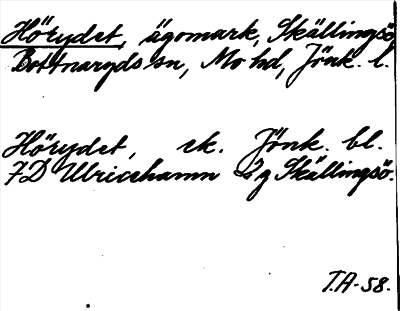 Hörydet, ägomark, Skällingsö,
Bottnaryds sn, Mo hd, Jönk. l.
Hörydet, ek. Jönk. bl.
7D Ulricehamn 2g Skällingsö.
T.A-58.